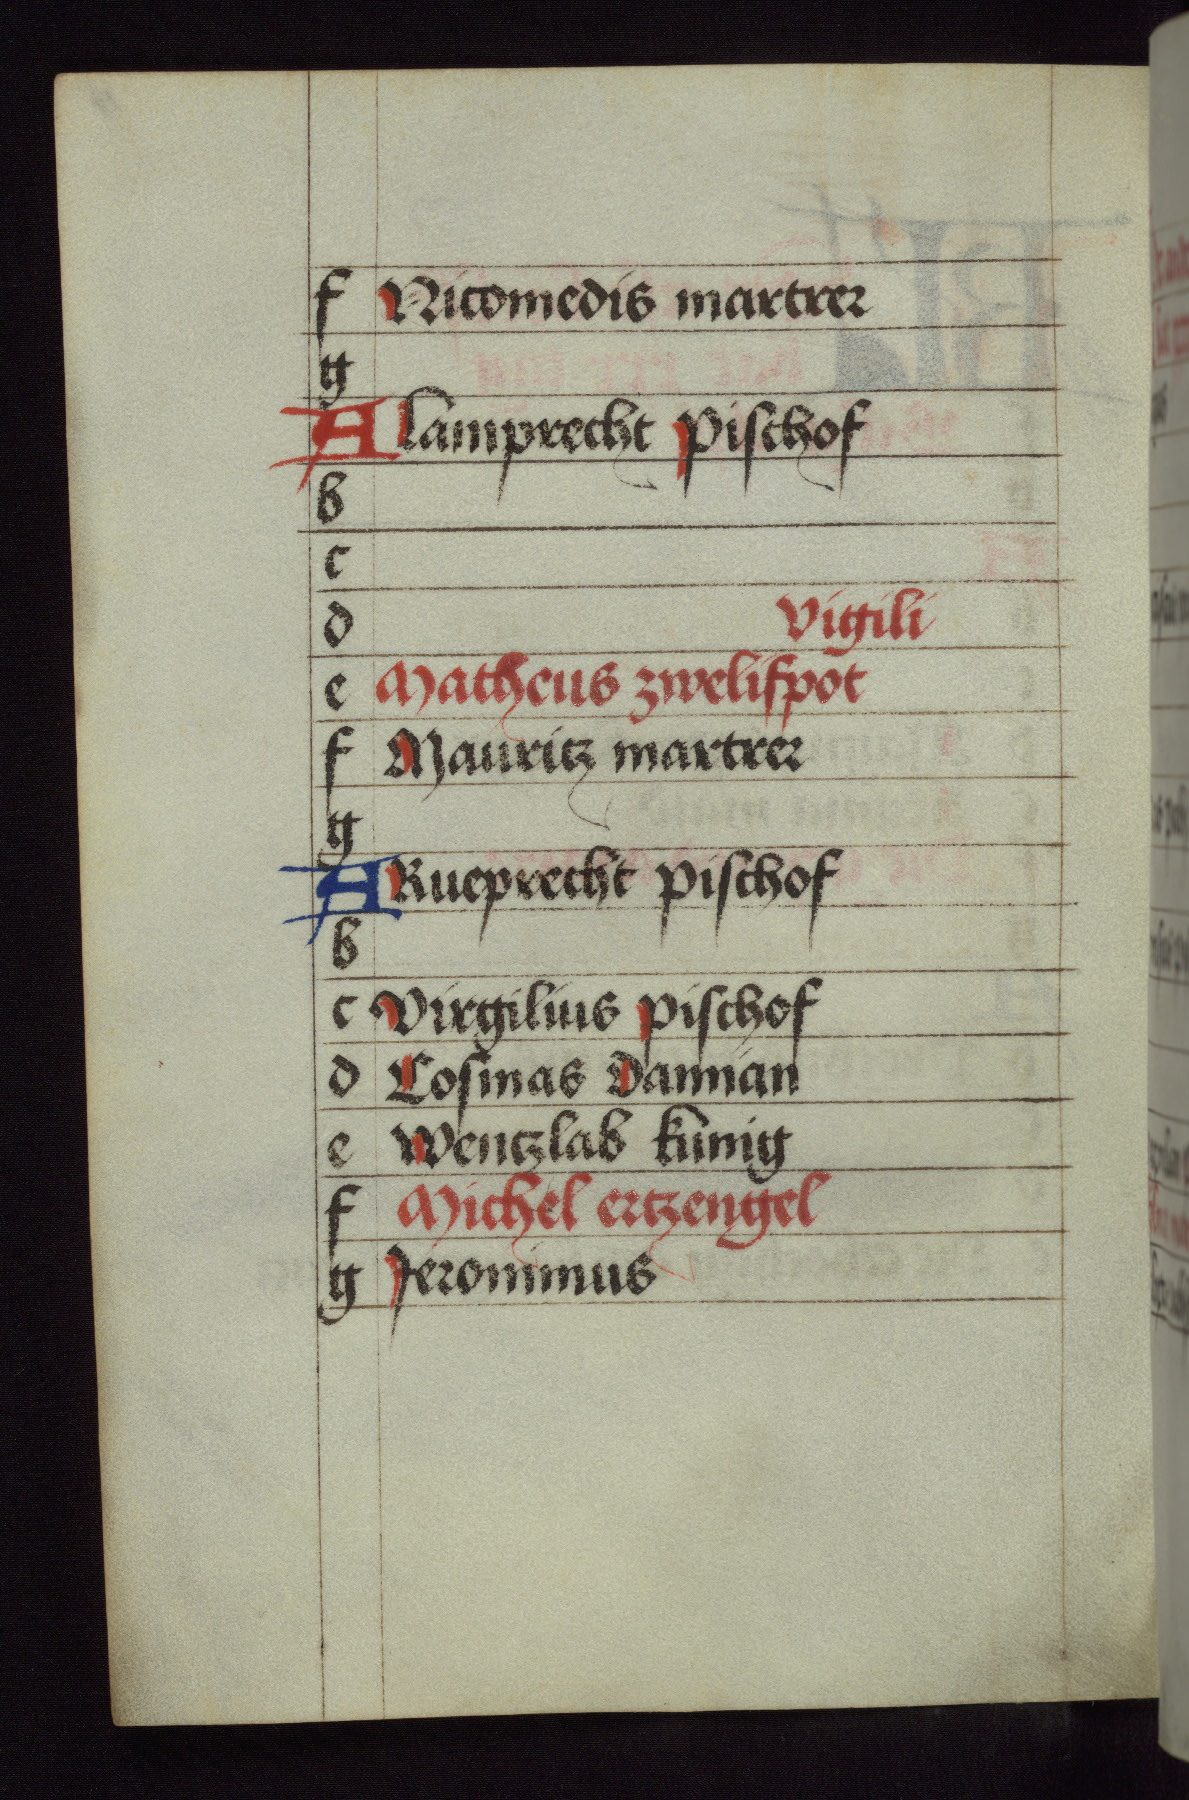 f Nicomedis martrer
g
A lamprecht pischof
b
c
d Vigili
e Matheus zwelifpot
f Mauritz martrer
g
A Rueprecht pischof
b
c Virgilius pischof
d Cosmas Damian
e Wentzlab kunig
f Michel ertzengel
g Jeronimus